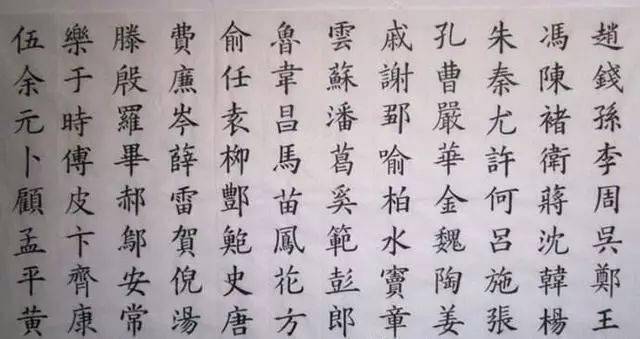 趙錢孫李周吳鄭王
馮陳褚衛蔣沈韓楊
朱秦尤許何呂施張
孔曹嚴華金魏陶姜
戚謝鄒喻柏水竇章
雲蘇潘葛奚範彭郎
魯韋昌馬苗鳳花方
俞任袁柳酆鮑史唐
費廉岑薛雷賀倪湯
滕殷羅畢郝鄔安常
樂于時傅皮卞齊康
伍余元卜顧孟平黃